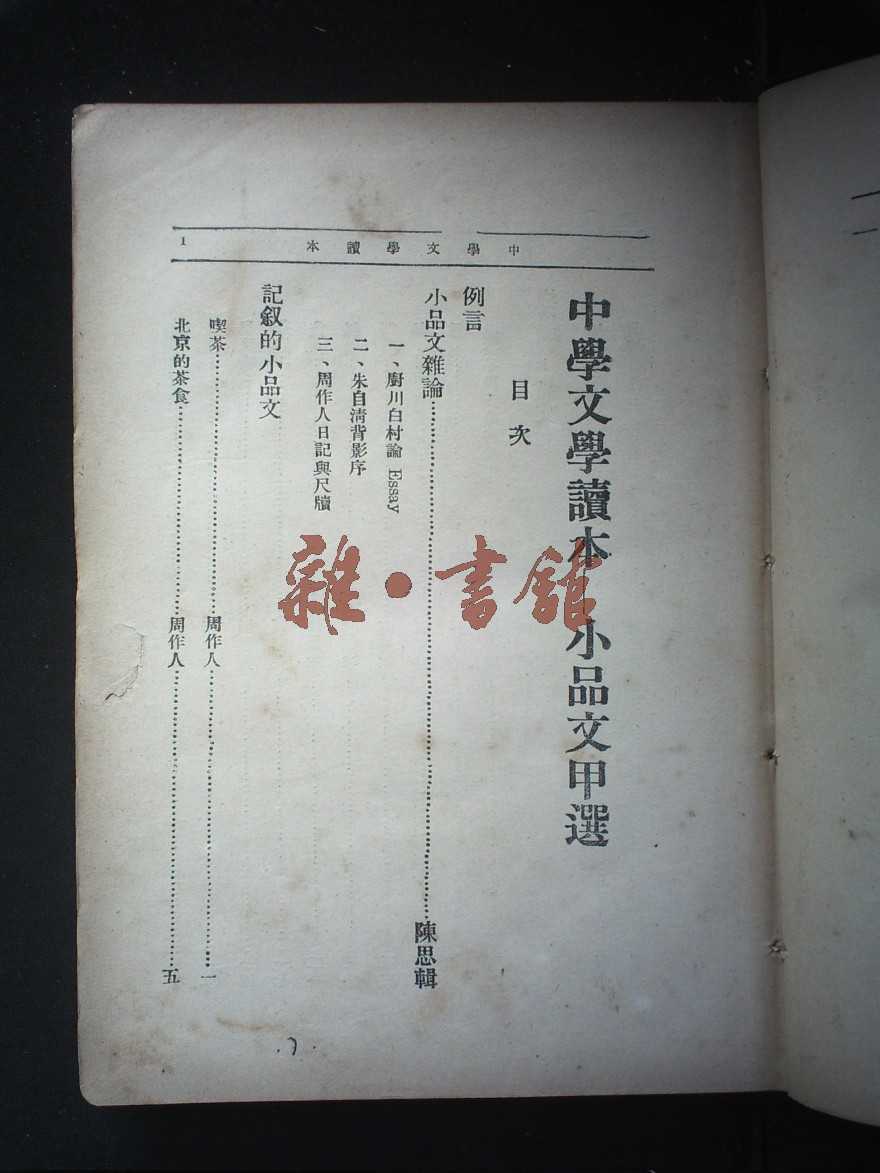 中學文學讀本
1
中學文學讀本 小品文甲選
目次
例言
小品文雜論……陳思輯
一、廚川白村論 Essay
二、朱自淸背影序
三、周作人日記與尺牘
記叙的小品文
喫茶……周作人……一
北京的茶食……周作人……五
雜·書舘